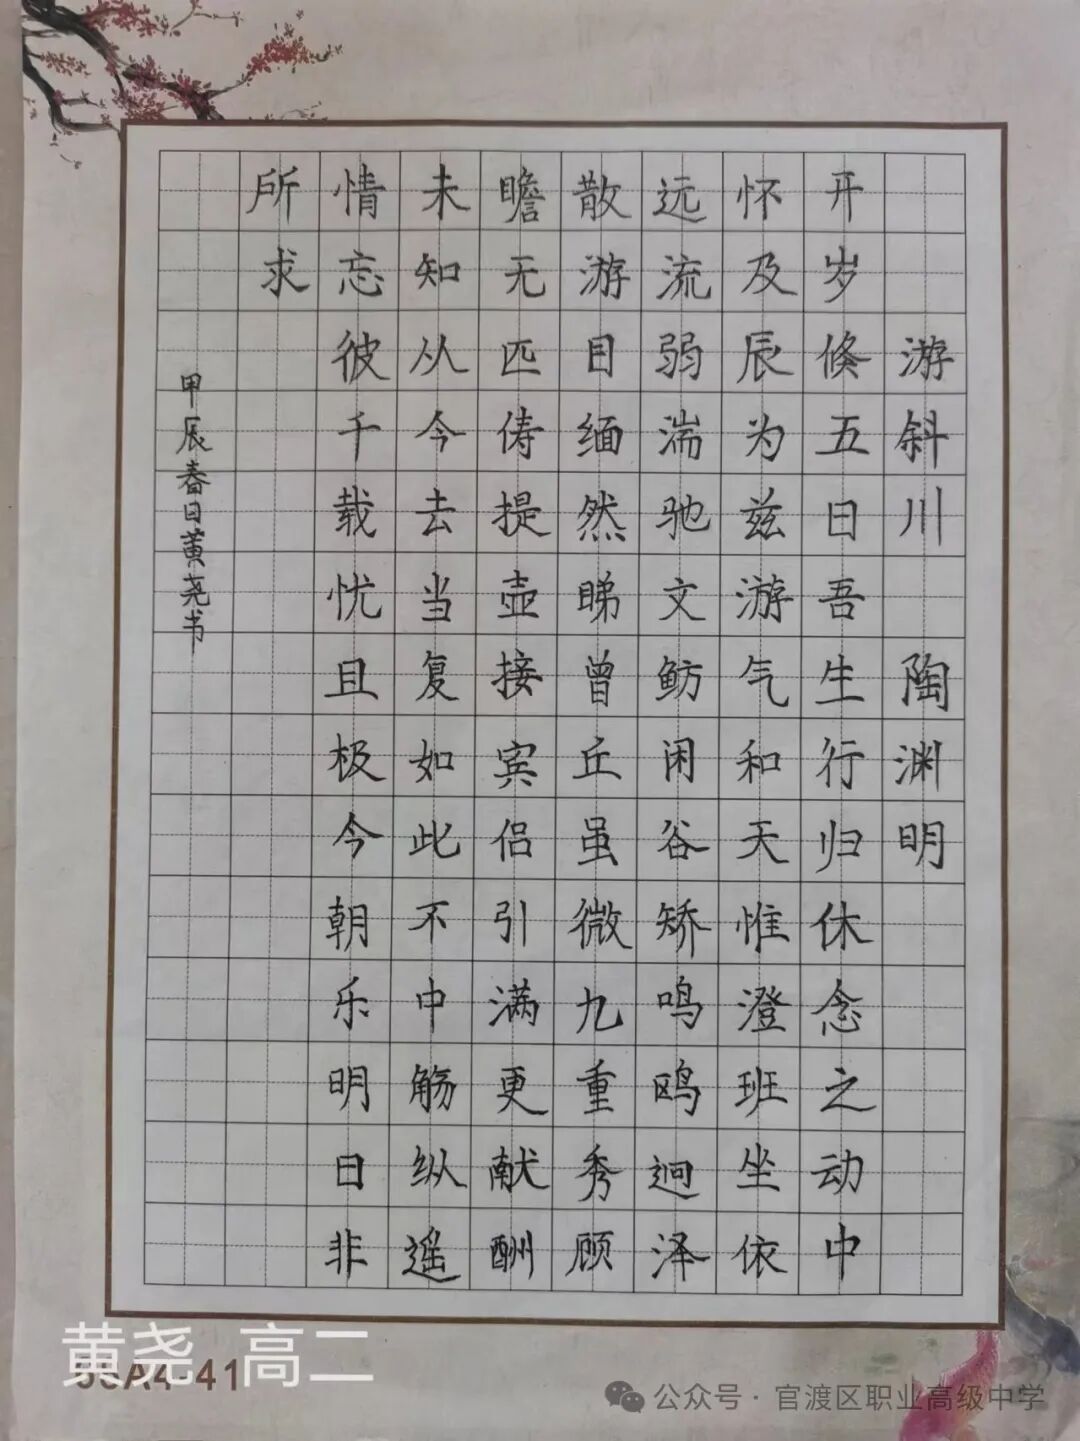 游斜川 陶渊明
开岁倏五日吾生行归休念之动中
怀及辰为兹游气和天惟澄班坐依
远流弱湍驰文鲂闲谷矫鸣鸥迥泽
散游目缅然睇曾丘虽微九重秀顾
瞻无匹俦提壶接宾侣引满更献酬
未知从今去当复如此不中觞纵遥
情忘彼千载忧且极今朝乐明日非
所求
甲辰春日黄尧书
黄尧 高二
A4-41
公众号·官渡区职业高级中学